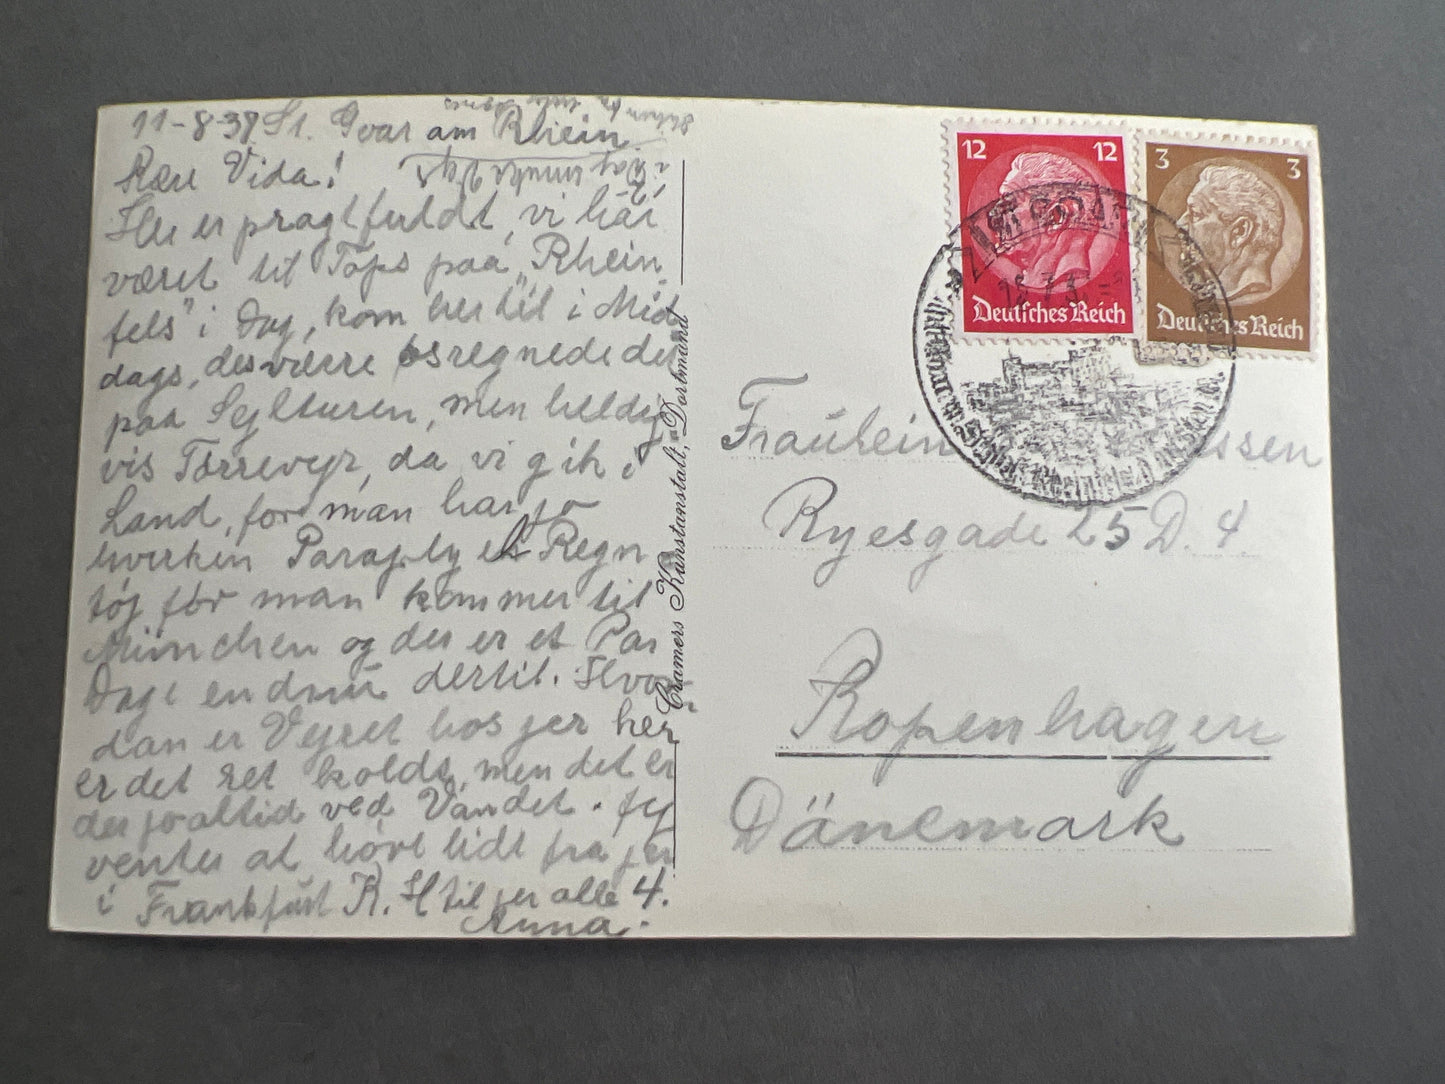 11-8-39 St. Goar am Rhein
Kære Vida!
Her er pragtfuldt, vi har
været til Tops paa "Rhein
fels" i Dag, kom hertil i Mid
dags, desværre øsregnede det
paa Sejlturen, men heldig
vis Tørrevejr, da vi gik i
Land, for man har jo
hverken Paraply el Regn
tøj før man kommer til
München og der er et Par
Dage endnu dertil. Hvor
dan er Vejret hos jer her
er det ret koldt, men det er
der jo altid ved Vandet. Jeg
venter at høre lidt fra jer
i Frankfurt K. H til jer alle 4.
Anna.
Cramers Kunstanstalt, Dortmund
12 12
Deutsches Reich
3 3
Deutsches Reich
ST. GOAR
Fräulein
Ryesgade 25 D. 4
Kopenhagen
Dänemark